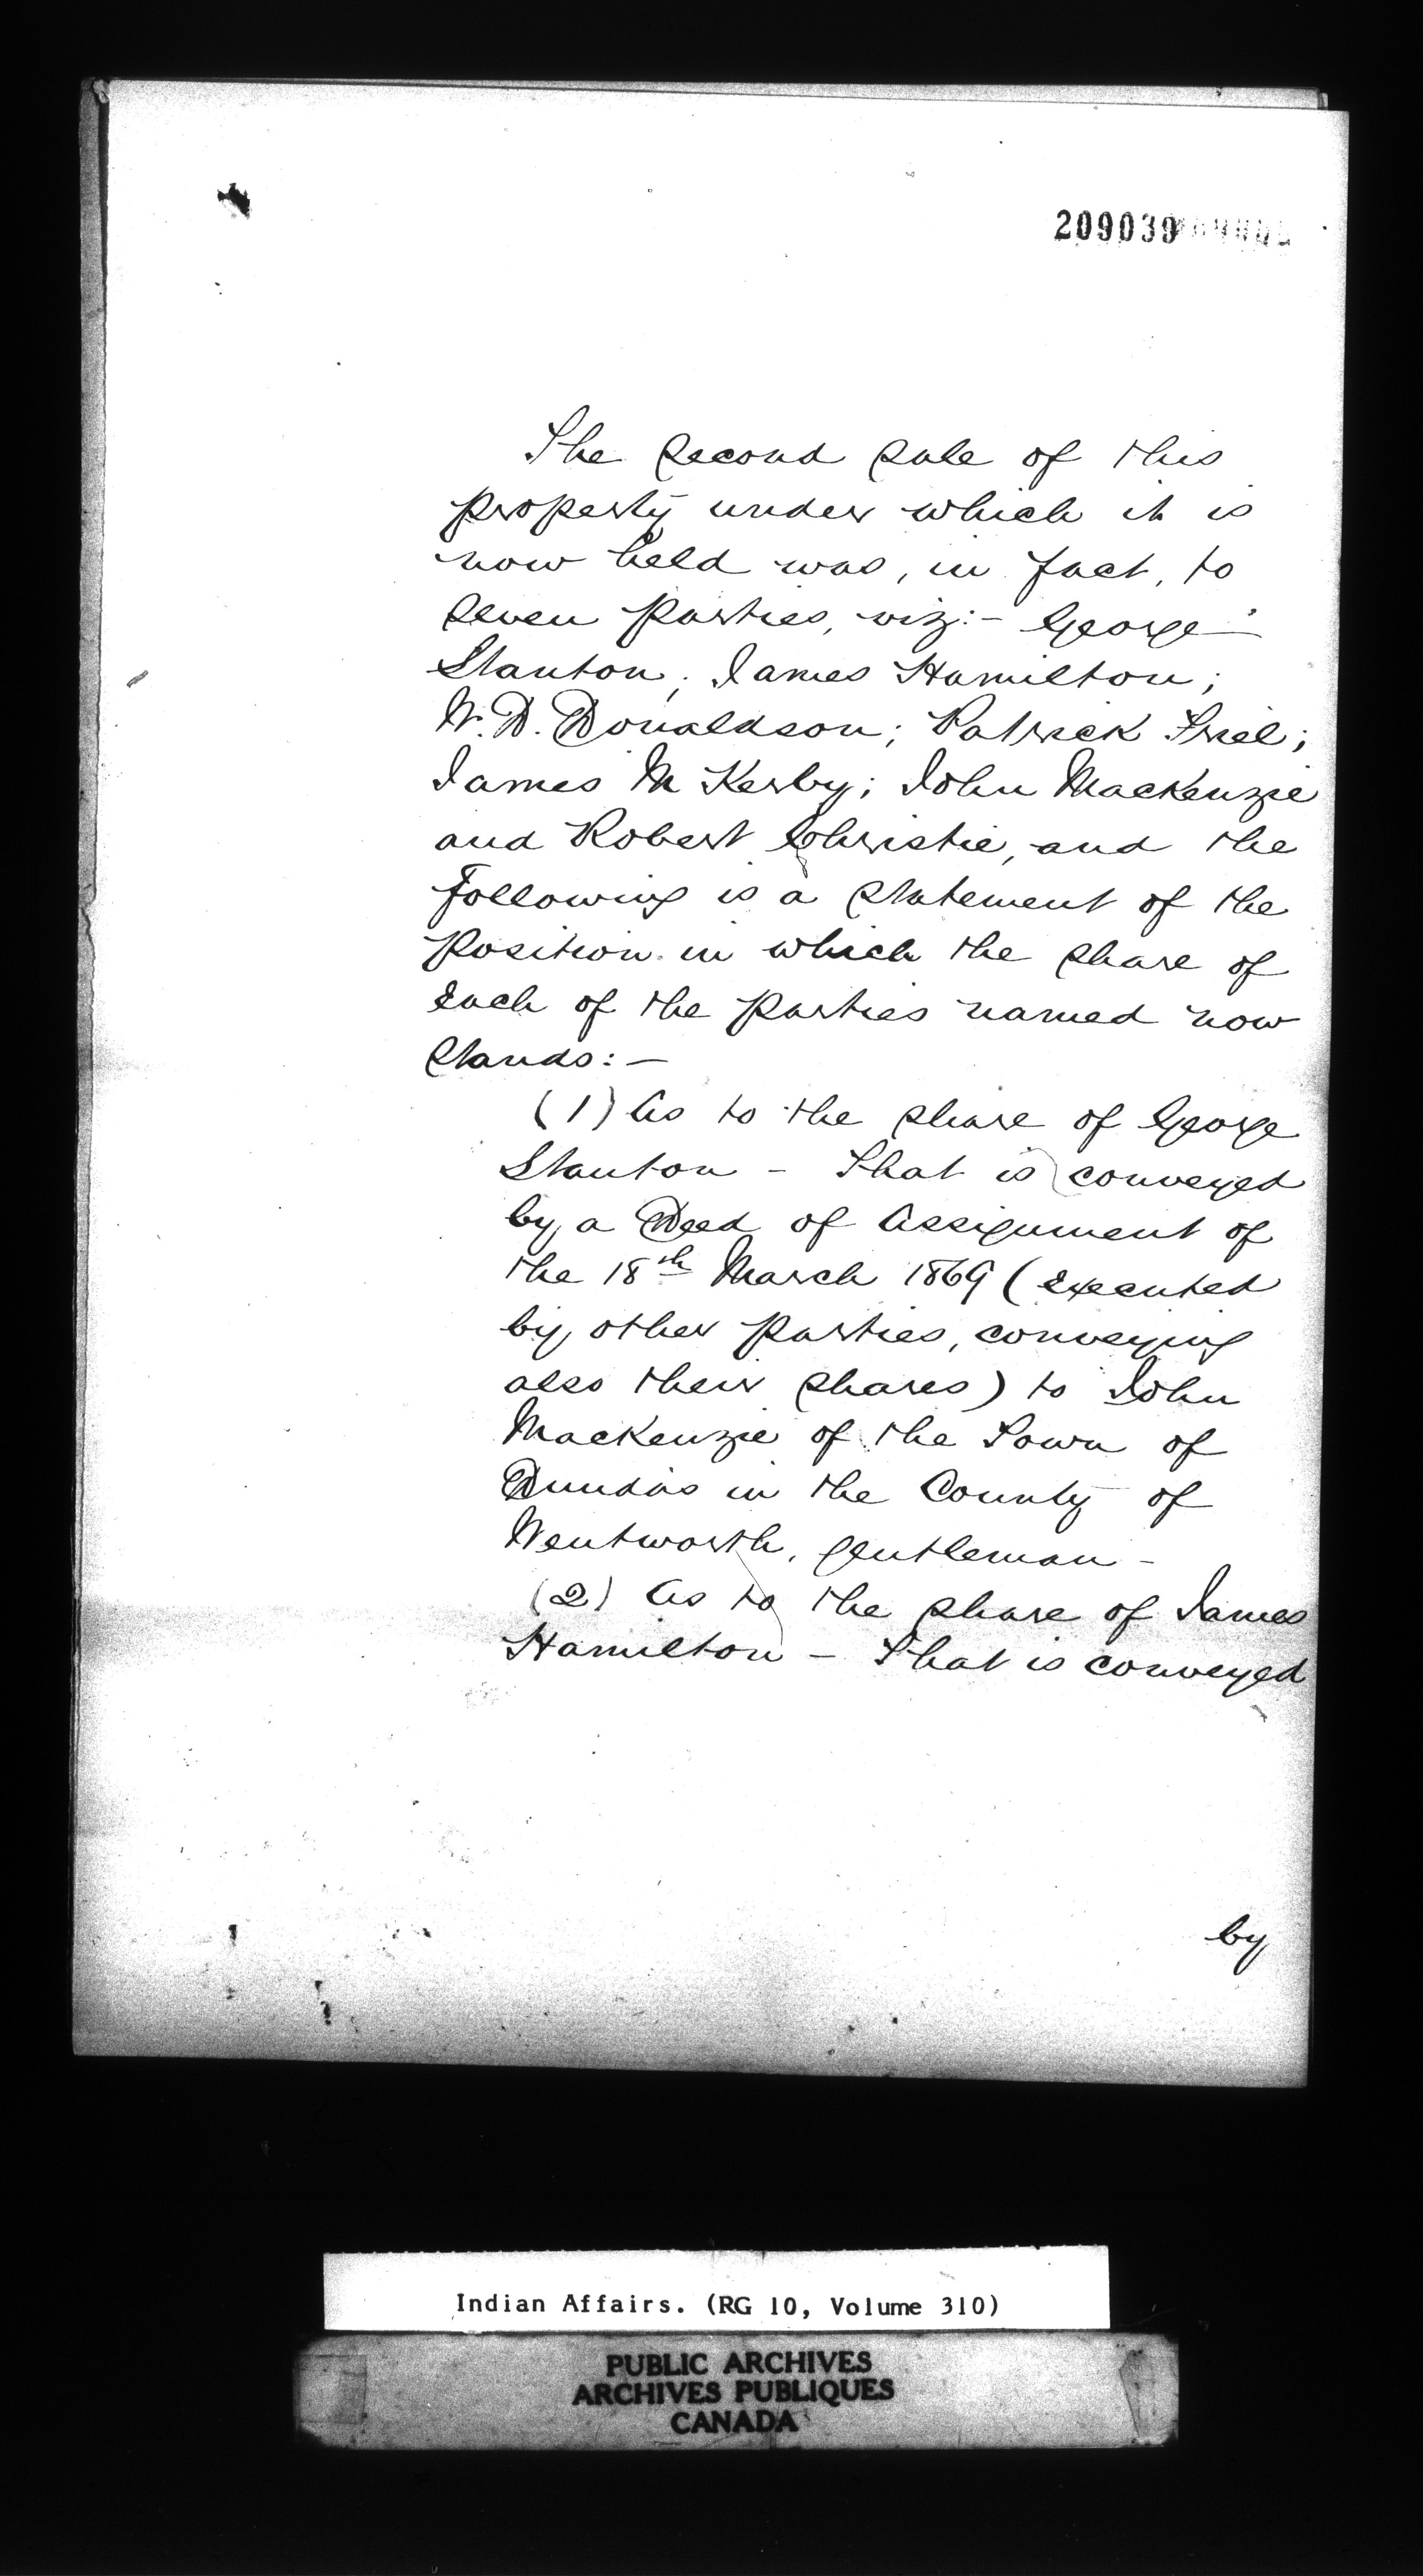 209039
The second sale of this
property under which it is
now held was, in fact, to
seven parties, viz:- George
Stanton; James Hamilton;
W. D. Donaldson; Patrick Friel;
James M Kerby; John Mackenzie
and Robert Christie, and the
following is a statement of the
position in which the share of
each of the parties named now
stands:-
(1) As to the share of George
Stanton - That is conveyed
by a Deed of Assignment of
the 18th March 1869 (executed
by other parties, conveying
also their shares) to John
Mackenzie of the Town of
Dundas in the County of
Wentworth, gentleman -
(2) As to the share of James
Hamilton - That is conveyed
by
Indian Affairs. (RG 10, Volume 310)
PUBLIC ARCHIVES
ARCHIVES PUBLIQUES
CANADA